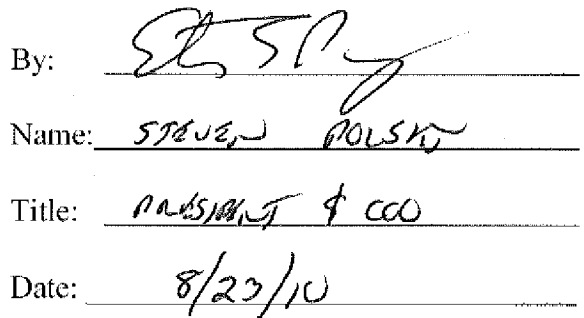 By:
Name: STEVEN POLSKY
Title: PRESIDENT & COO
Date: 8/23/10